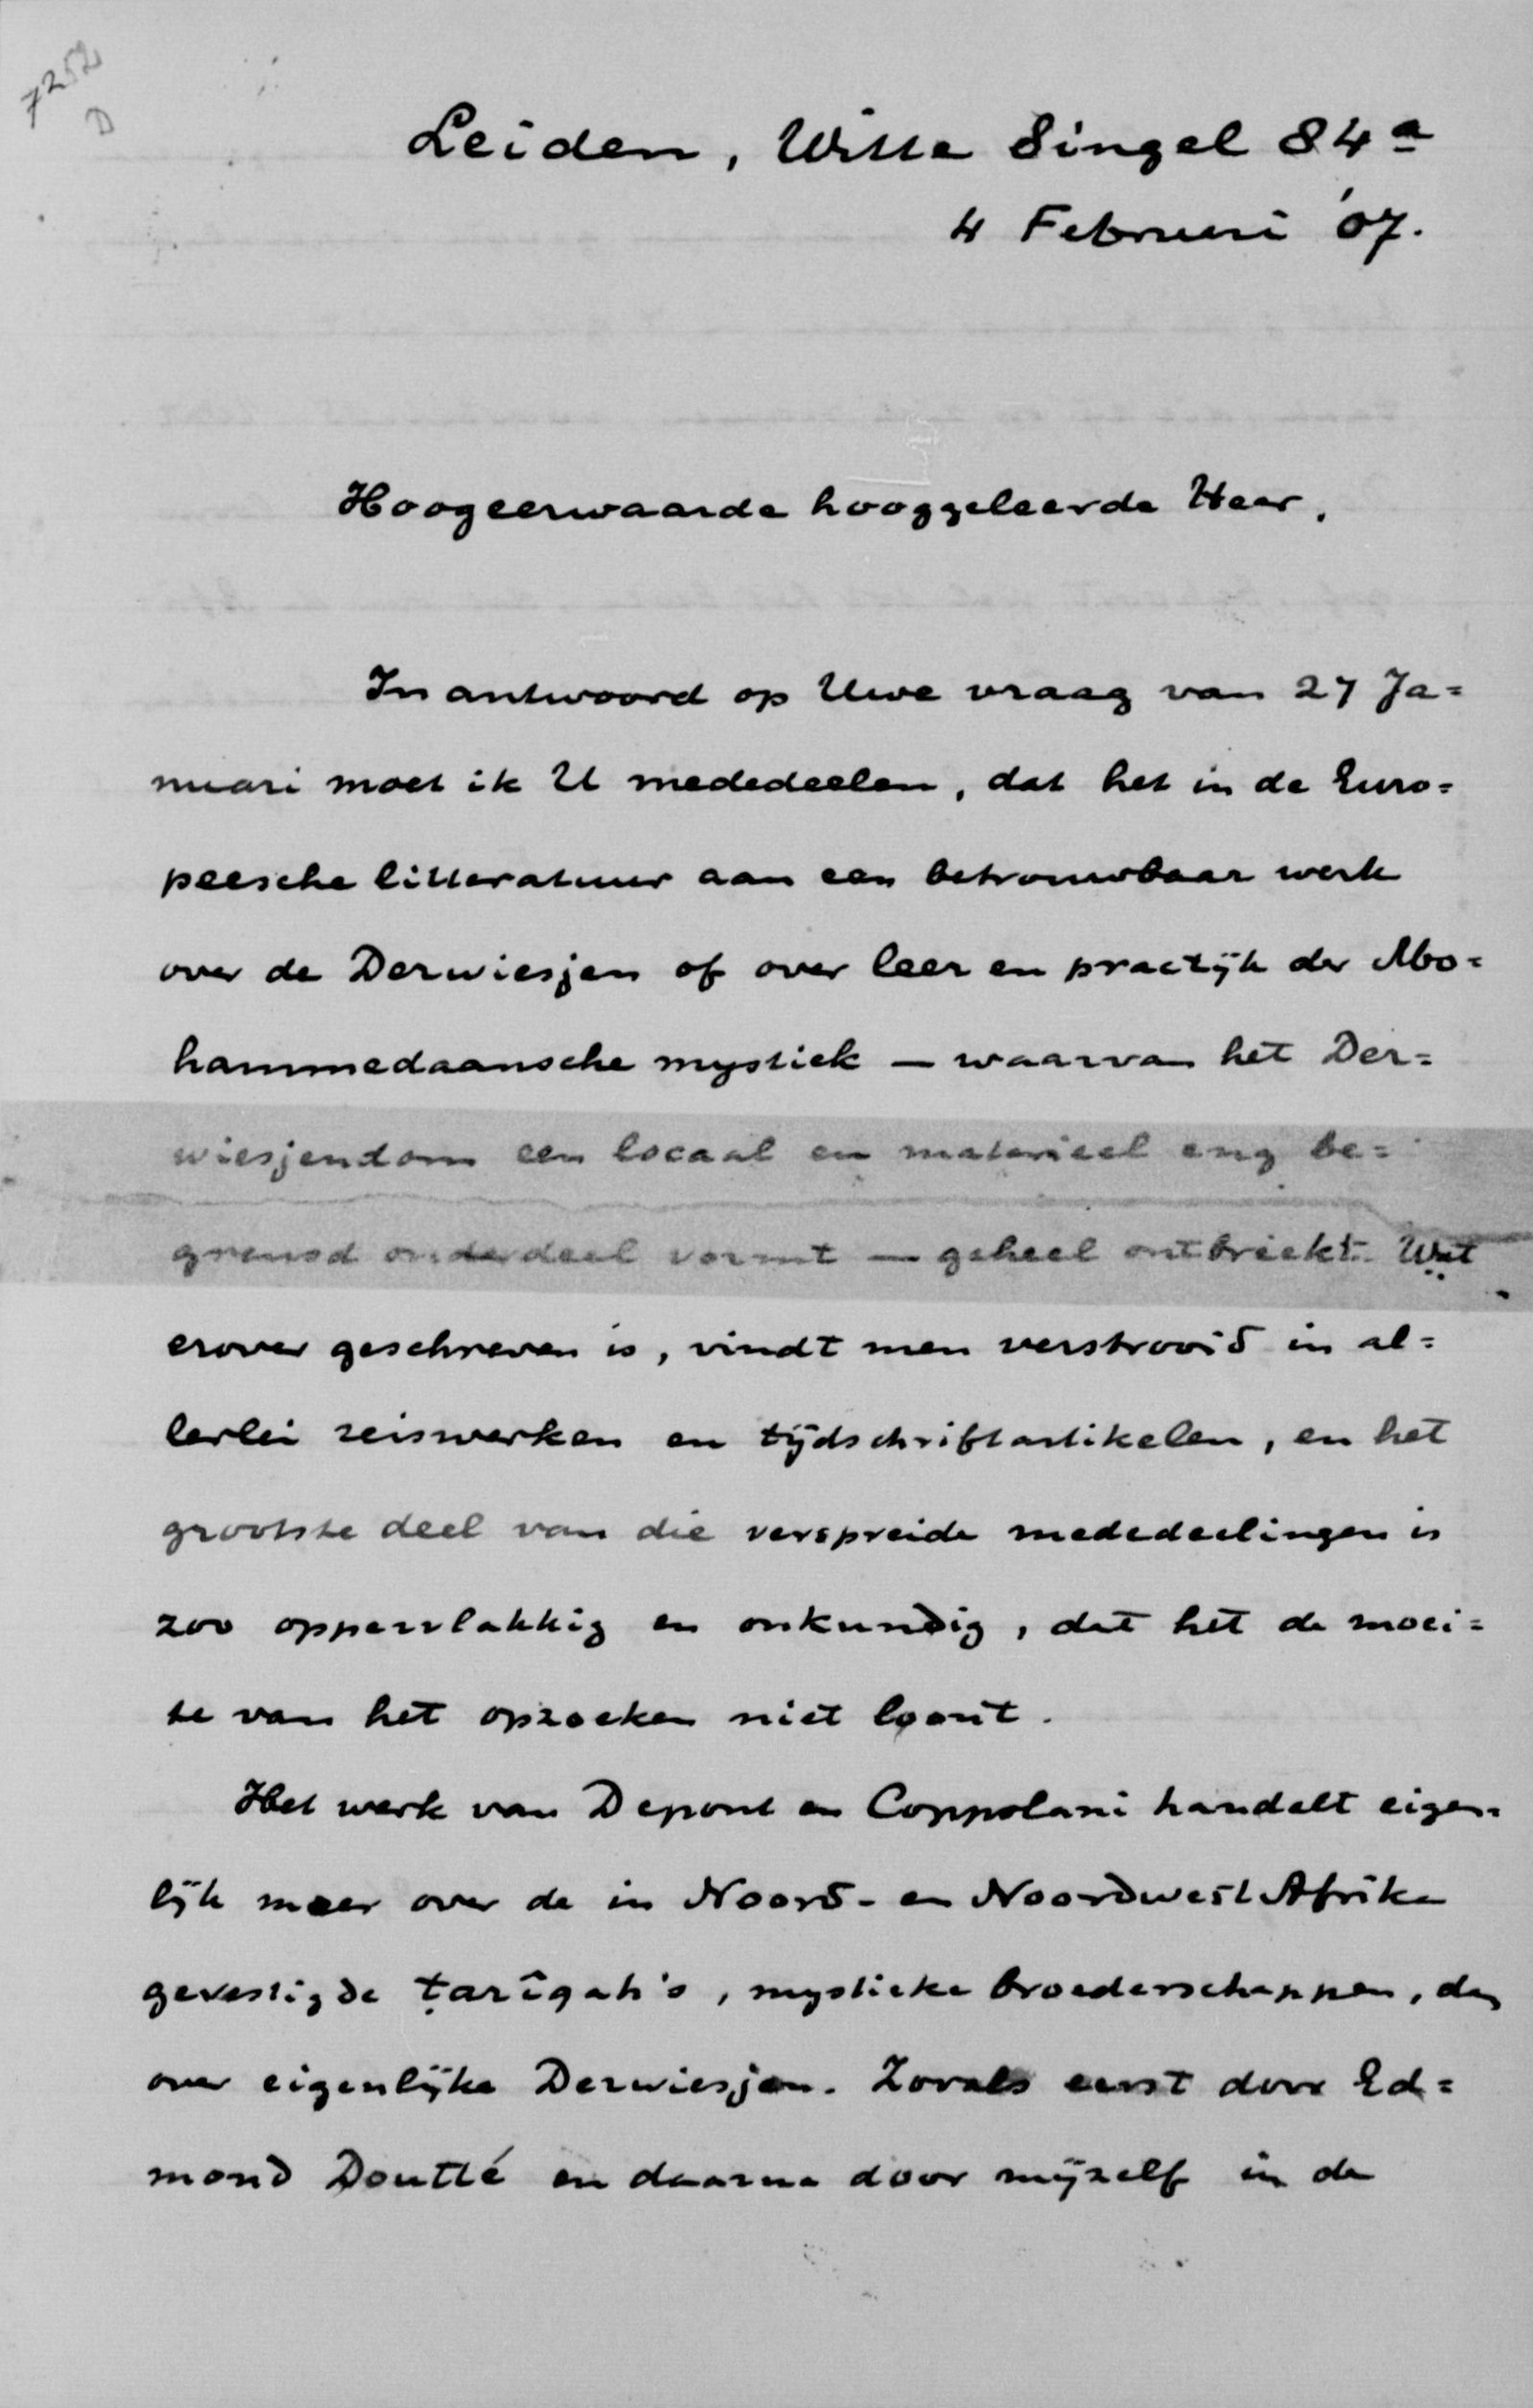 7252
D
Leiden, Witte Singel 84a
4 Februari '07.
Hoogeerwaarde hooggeleerde Heer,
In antwoord op Uwe vraag van 27 Ja=
nuari moet ik U mededeelen, dat het in de Euro=
peesche litteratuur aan een betrouwbaar werk
over de Derwiesjen of over leer en practijk der Mo=
hammedaansche mystiek — waarvan het Der=
wiesjendom een locaal en materieel eng be=
grensd onderdeel vormt — geheel ontbreekt. Wat
erover geschreven is, vindt men verstrooid in al=
lerlei reiswerken en tijdschriftartikelen, en het
grootste deel van die verspreide mededeelingen is
zoo oppervlakkig en onkundig, dat het de moei=
te van het opzoeken niet loont.
Het werk van Depont en Coppolani handelt eigen=
lijk meer over de in Noord- en Noordwest Afrika
gevestigde ṭarîqah's, mystieke broederschappen, dan
over eigenlijke Derwiesjen. Zooals eerst door Ed=
mond Doutté en daarna door mijzelf in de